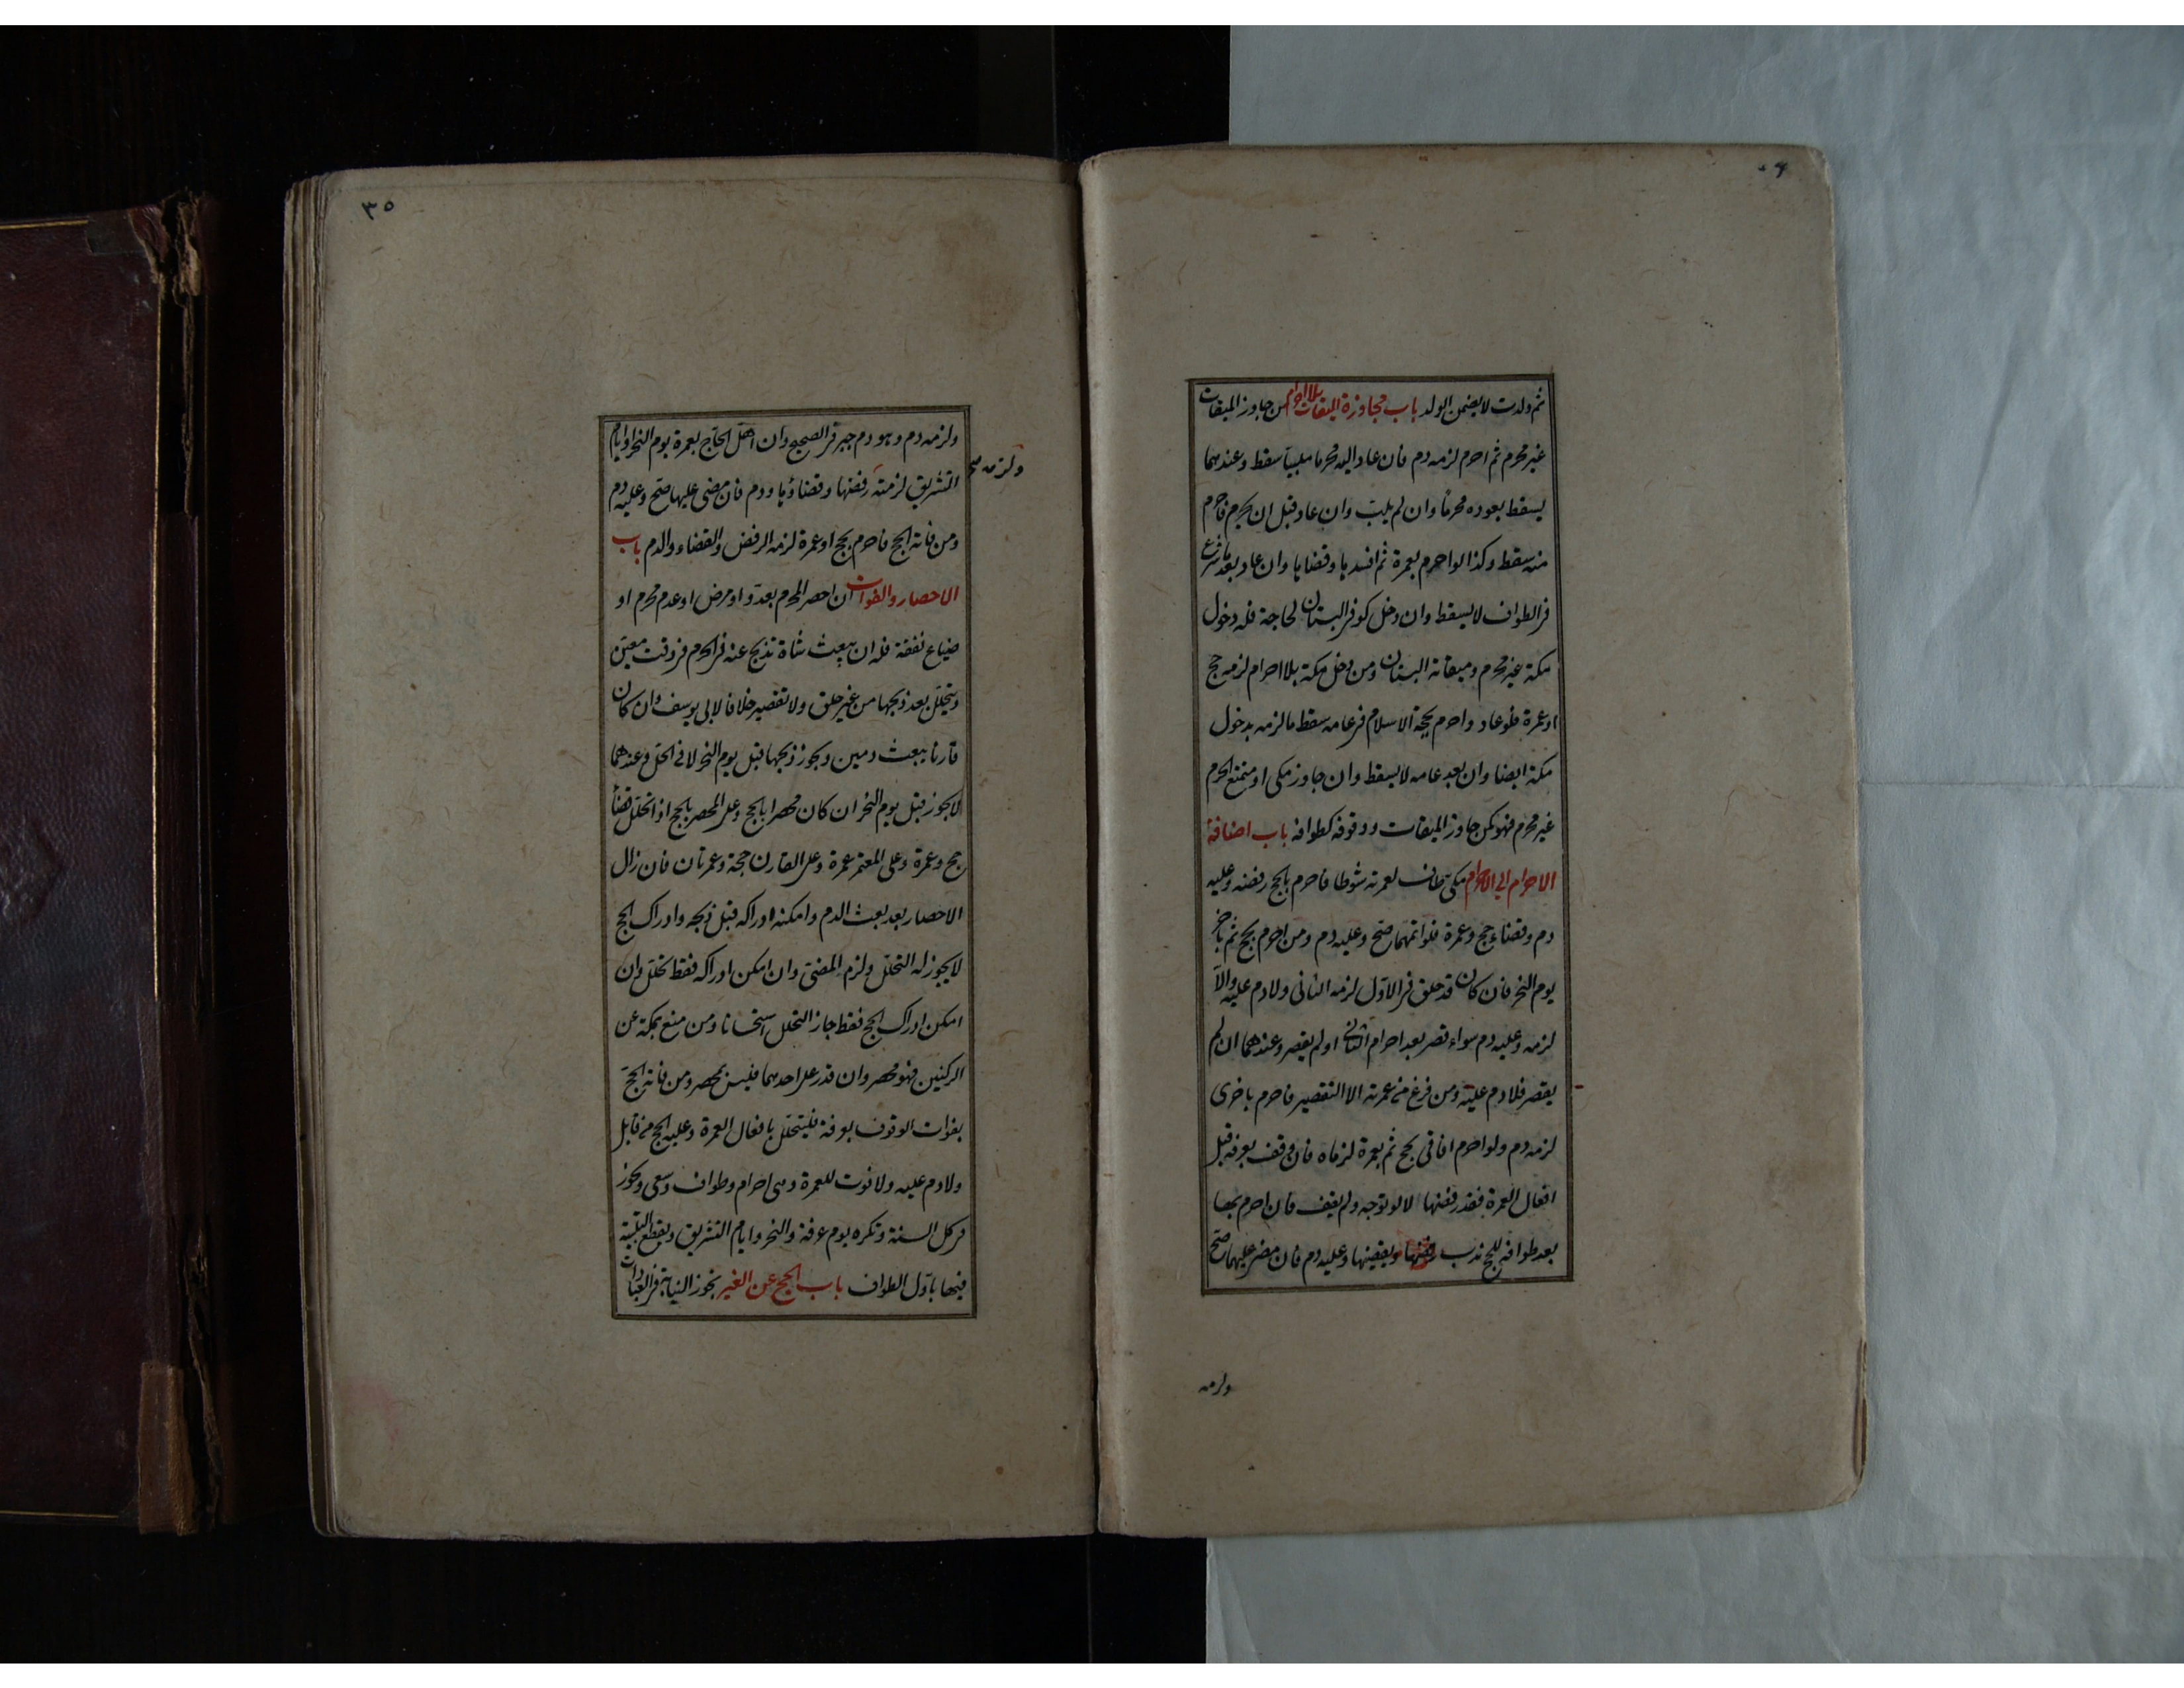 ثم ولدت لا يضمن الولد باب مجاوزة الميقات بلا احرام من جاوز الميقات
غير محرم ثم احرم لزمه دم فان عاد اليه محرما ملبيا سقط وعندهما
يسقط بعوده محرما وان لم يلب وان عاد قبل ان يحرم فاحرم
منه سقط وكذا لو احرم بعمرة ثم افسدها وقضاها وان عاد بعد ما شرع
في الطواف لا يسقط وان دخل كوفي البستان لحاجة فله دخول
مكة غير محرم وميقاته البستان ومن دخل مكة بلا احرام لزمه حج
او عمرة فلو عاد واحرم بحجة الاسلام في عامه سقط ما لزمه بدخول
مكة ايضا وان بعد عامه لا يسقط وان جاوز مكي او متمتع الحرم
غير محرم فهو كمن جاوز الميقات ووقوفه كطوافه باب اضافة
الاحرام الى الاحرام مكي طاف لعمرته شوطا فاحرم بالحج رفضه وعليه
دم وقضاء حج وعمرة فلو اتمهما صح وعليه دم ومن احرم بحج ثم باخر
يوم النحر فان كان قد حلق في الاول لزمه الثاني ولا دم عليه والا
لزمه وعليه دم سواء قصر بعد احرام الثاني او لم يقصر وعندهما ان لم
يقصر فلا دم عليه ومن فرغ من عمرته الا التقصير فاحرم باخرى
لزمه دم ولو احرم افاقي بحج ثم بعمرة لزماه فان وقف بعرفة قبل
افعال العمرة فقد رفضها لا لو توجه ولم يقف فان احرم بها
بعد طوافه للحج ندب رفضها ويقضيها وعليه دم فان مضى عليهما صح
ولزمه
٣٥
ولزمه دم وهو دم جبر في الصحيح وان اهل الحاج بعمرة يوم النحر او ايام
التشريق لزمته رفضها وقضاؤها ودم فان مضى عليها صح وعليه دم
ولزمه صح
ومن فاته الحج فاحرم بحج او عمرة لزمه الرفض والقضاء والدم باب
الاحصار والفوات ان احصر المحرم بعدو او مرض او عدم محرم او
ضياع نفقة فله ان يبعث شاة تذبح عنه في الحرم في وقت معين
ويتحلل بعد ذبحها من غير حلق ولا تقصير خلافا لابي يوسف وان كان
قارنا يبعث دمين ويجوز ذبحها قبل يوم النحر لا في الحل وعندهما
لا يجوز قبل يوم النحر ان كان محصرا بالحج وعلى المحصر بالحج اذا تحلل قضاء
حج وعمرة وعلى المعتمر عمرة وعلى القارن حجة وعمرتان فان زال
الاحصار بعد بعث الدم وامكنه ادراكه قبل ذبحه وادراك الحج
لا يجوز له التحلل ولزم المضي وان امكن ادراكه فقط تحلل وان
امكن ادراك الحج فقط جاز التحلل استحسانا ومن منع بمكة عن
الركنين فهو محصر وان قدر على احدهما فليس بمحصر ومن فاته الحج
بفوات الوقوف بعرفة فليتحلل بافعال العمرة وعليه الحج من قابل
ولا دم عليه ولا فوت للعمرة وهي احرام وطواف وسعي وتجوز
في كل السنة وتكره يوم عرفة والنحر وايام التشريق ويقطع التلبية
فيها باول الطواف باب الحج عن الغير تجوز النيابة في العبادات